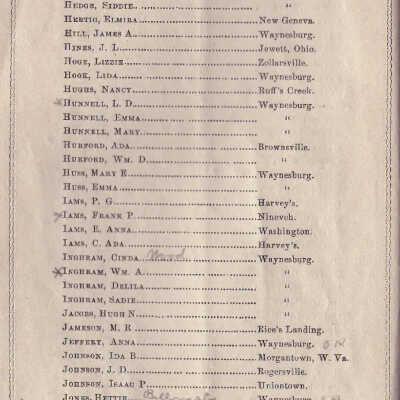 HEDGE, SIDDIE.................... "
HERTIG, ELMIRA....................New Geneva.
HILL, JAMES A.....................Waynesburg.
HINES, J. L.......................Jewett, Ohio.
HOGE, LIZZIE......................Zollarsville.
HOOK, LIDA........................Waynesburg.
HUGHS, NANCY......................Ruff's Creek.
HUNNELL, L. D.....................Waynesburg.
HUNNELL, EMMA..................... "
HUNNELL, MARY..................... "
HURFORD, ADA......................Brownsville.
HURFORD, WM. D.................... "
HUSS, MARY E......................Waynesburg.
HUSS, EMMA........................ "
IAMS, P. G........................Harvey's.
IAMS, FRANK P.....................Nineveh.
IAMS, E. ANNA.....................Washington.
IAMS, C. ADA......................Harvey's.
INGHRAM, CINDA....................Waynesburg.
INGHRAM, WM. A.................... "
INGHRAM, DELILA................... "
INGHRAM, SADIE.................... "
JACOBS, HUGH N.................... "
JAMESON, M. R.....................Rice's Landing.
JEFFERY, ANNA.....................Waynesburg.
JOHNSON, IDA B....................Morgantown, W. Va.
JOHNSON, J. D.....................Rogersville.
JOHNSON, ISAAC P..................Uniontown.
JONES, HETTIE.....................Waynesburg.